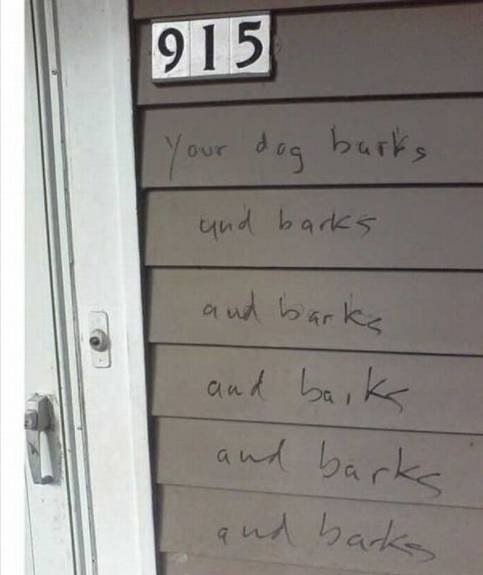 915
your dog barks
and barks
and barks
and barks
and barks
and barks